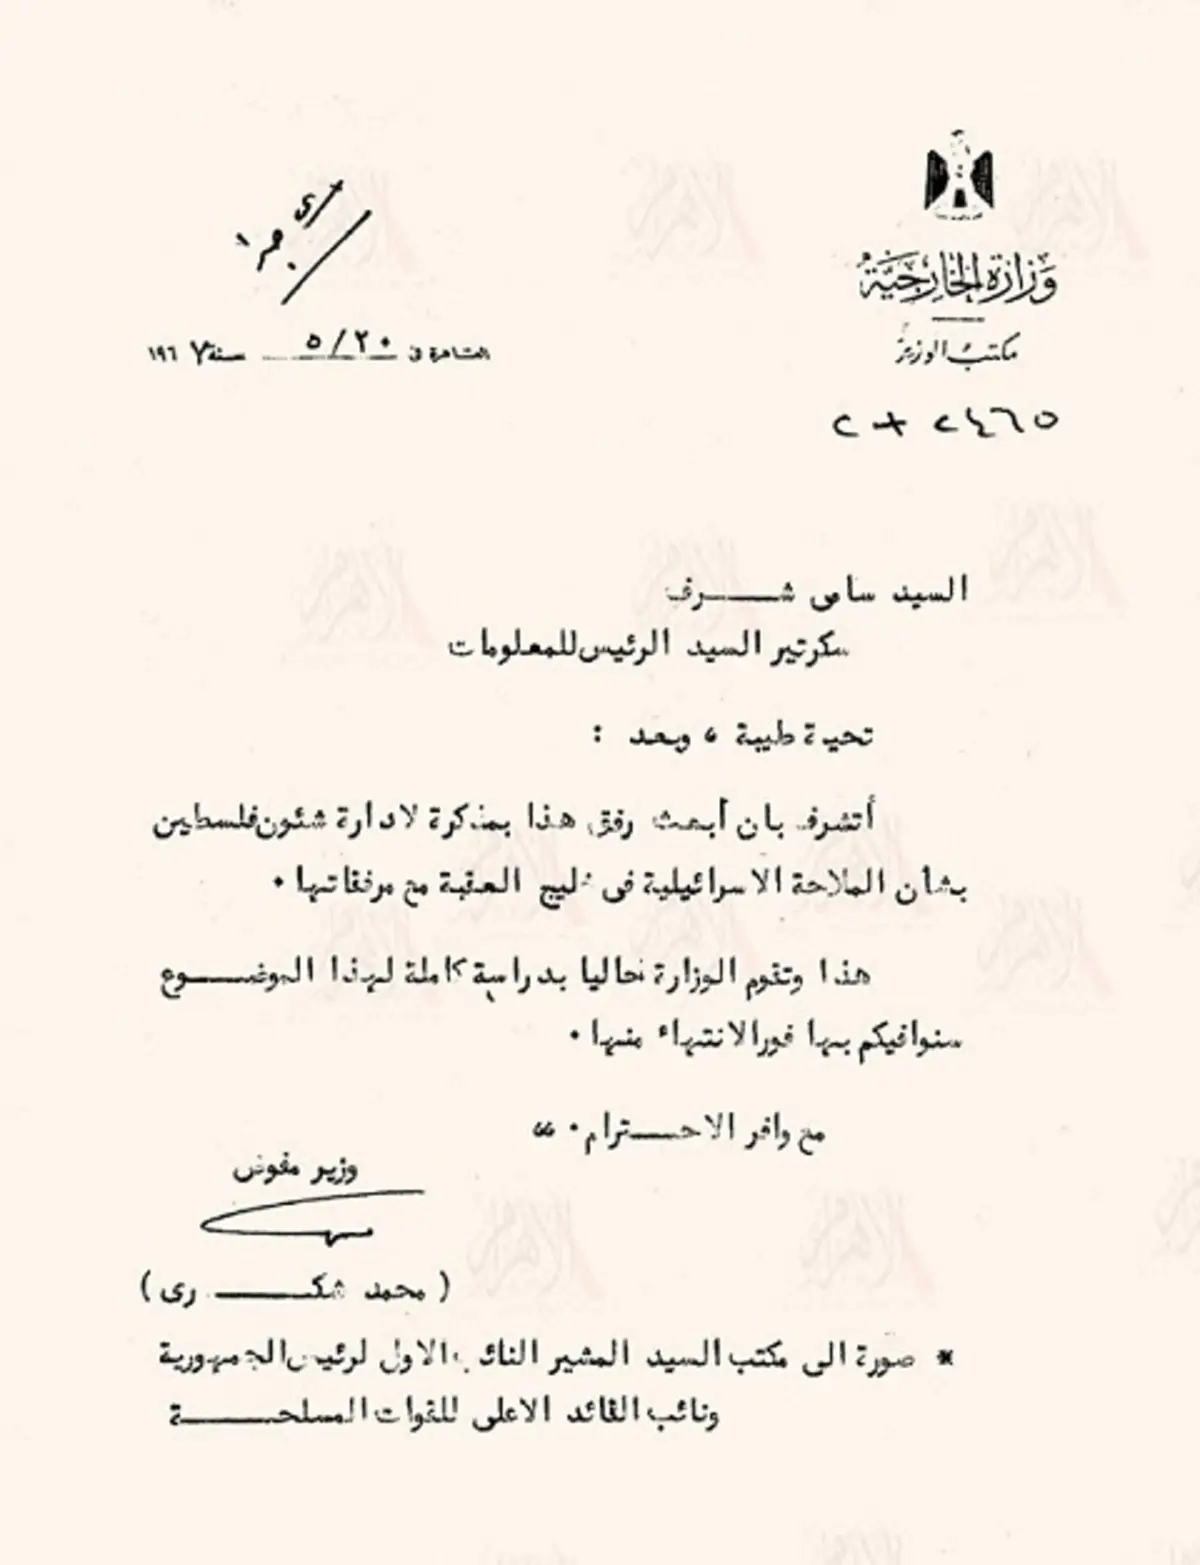 وزارة الخارجية
مكتب الوزير
القاهرة فى ٢٠/٥ سنة ١٩٦٧
السيد سامى شـــرف
سكرتير السيد الرئيس للمعلومات
تحية طيبة ، وبعد :
أتشرف بان أبعث رفق هذا بمذكرة لادارة شئون فلسطين
بشأن الملاحة الاسرائيلية فى خليج العقبة مع مرفقاتها .
هذا وتقوم الوزارة حاليا بدراسة كاملة لهذا الموضـــوع
سنوافيكم بها فور الانتهاء منها .
مع وافر الاحـــترام . ،،
وزير مفوض
( محمد شكـــرى )
* صورة الى مكتب السيد المشير النائب الاول لرئيس الجمهورية
ونائب القائد الاعلى للقوات المسلحـــة